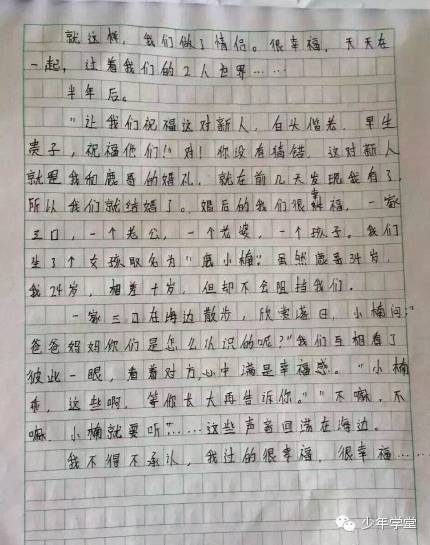 就这样，我们做了情侣。很幸福，天天在
一起，过着我们的2人世界……
半年后。
"让我们祝福这对新人，白头偕老，早生
贵子，祝福他们！"对！你没有猜错，这对新人
就是我和鹿哥的婚礼，就在前几天发现我有了，
所以我们就结婚了。婚后的我们很幸福，一家
三口，一个老公，一个老婆，一个孩子。我们
生了个女孩取名为"鹿小楠"。虽然鹿哥34岁，
我24岁，相差十岁，但却不会阻挡我们。
一家三口在海边散步，欣赏落日，小楠问："
爸爸妈妈你们是怎么认识的呢？"我们互相看了
彼此一眼，看着对方，心中满是幸福感。"小楠
乖，这些啊，等你长大再告诉你。""不嘛，不
嘛，小楠就要听"……这些声音回荡在海边。
我不得不承认，我过的很幸福，很幸福……
少年学堂